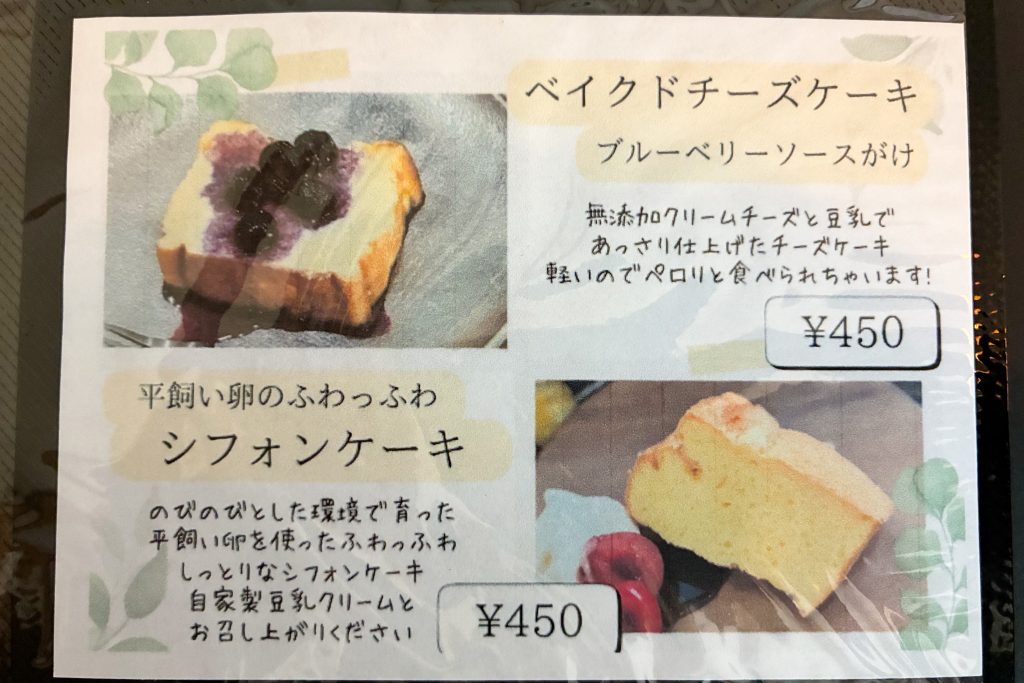 ベイクドチーズケーキ
ブルーベリーソースがけ
無添加クリームチーズと豆乳で
あっさり仕上げたチーズケーキ
軽いのでペロリと食べられちゃいます!
¥450
平飼い卵のふわっふわ
シフォンケーキ
のびのびとした環境で育った
平飼い卵を使ったふわっふわ
しっとりなシフォンケーキ
自家製豆乳クリームと
お召し上がりください
¥450